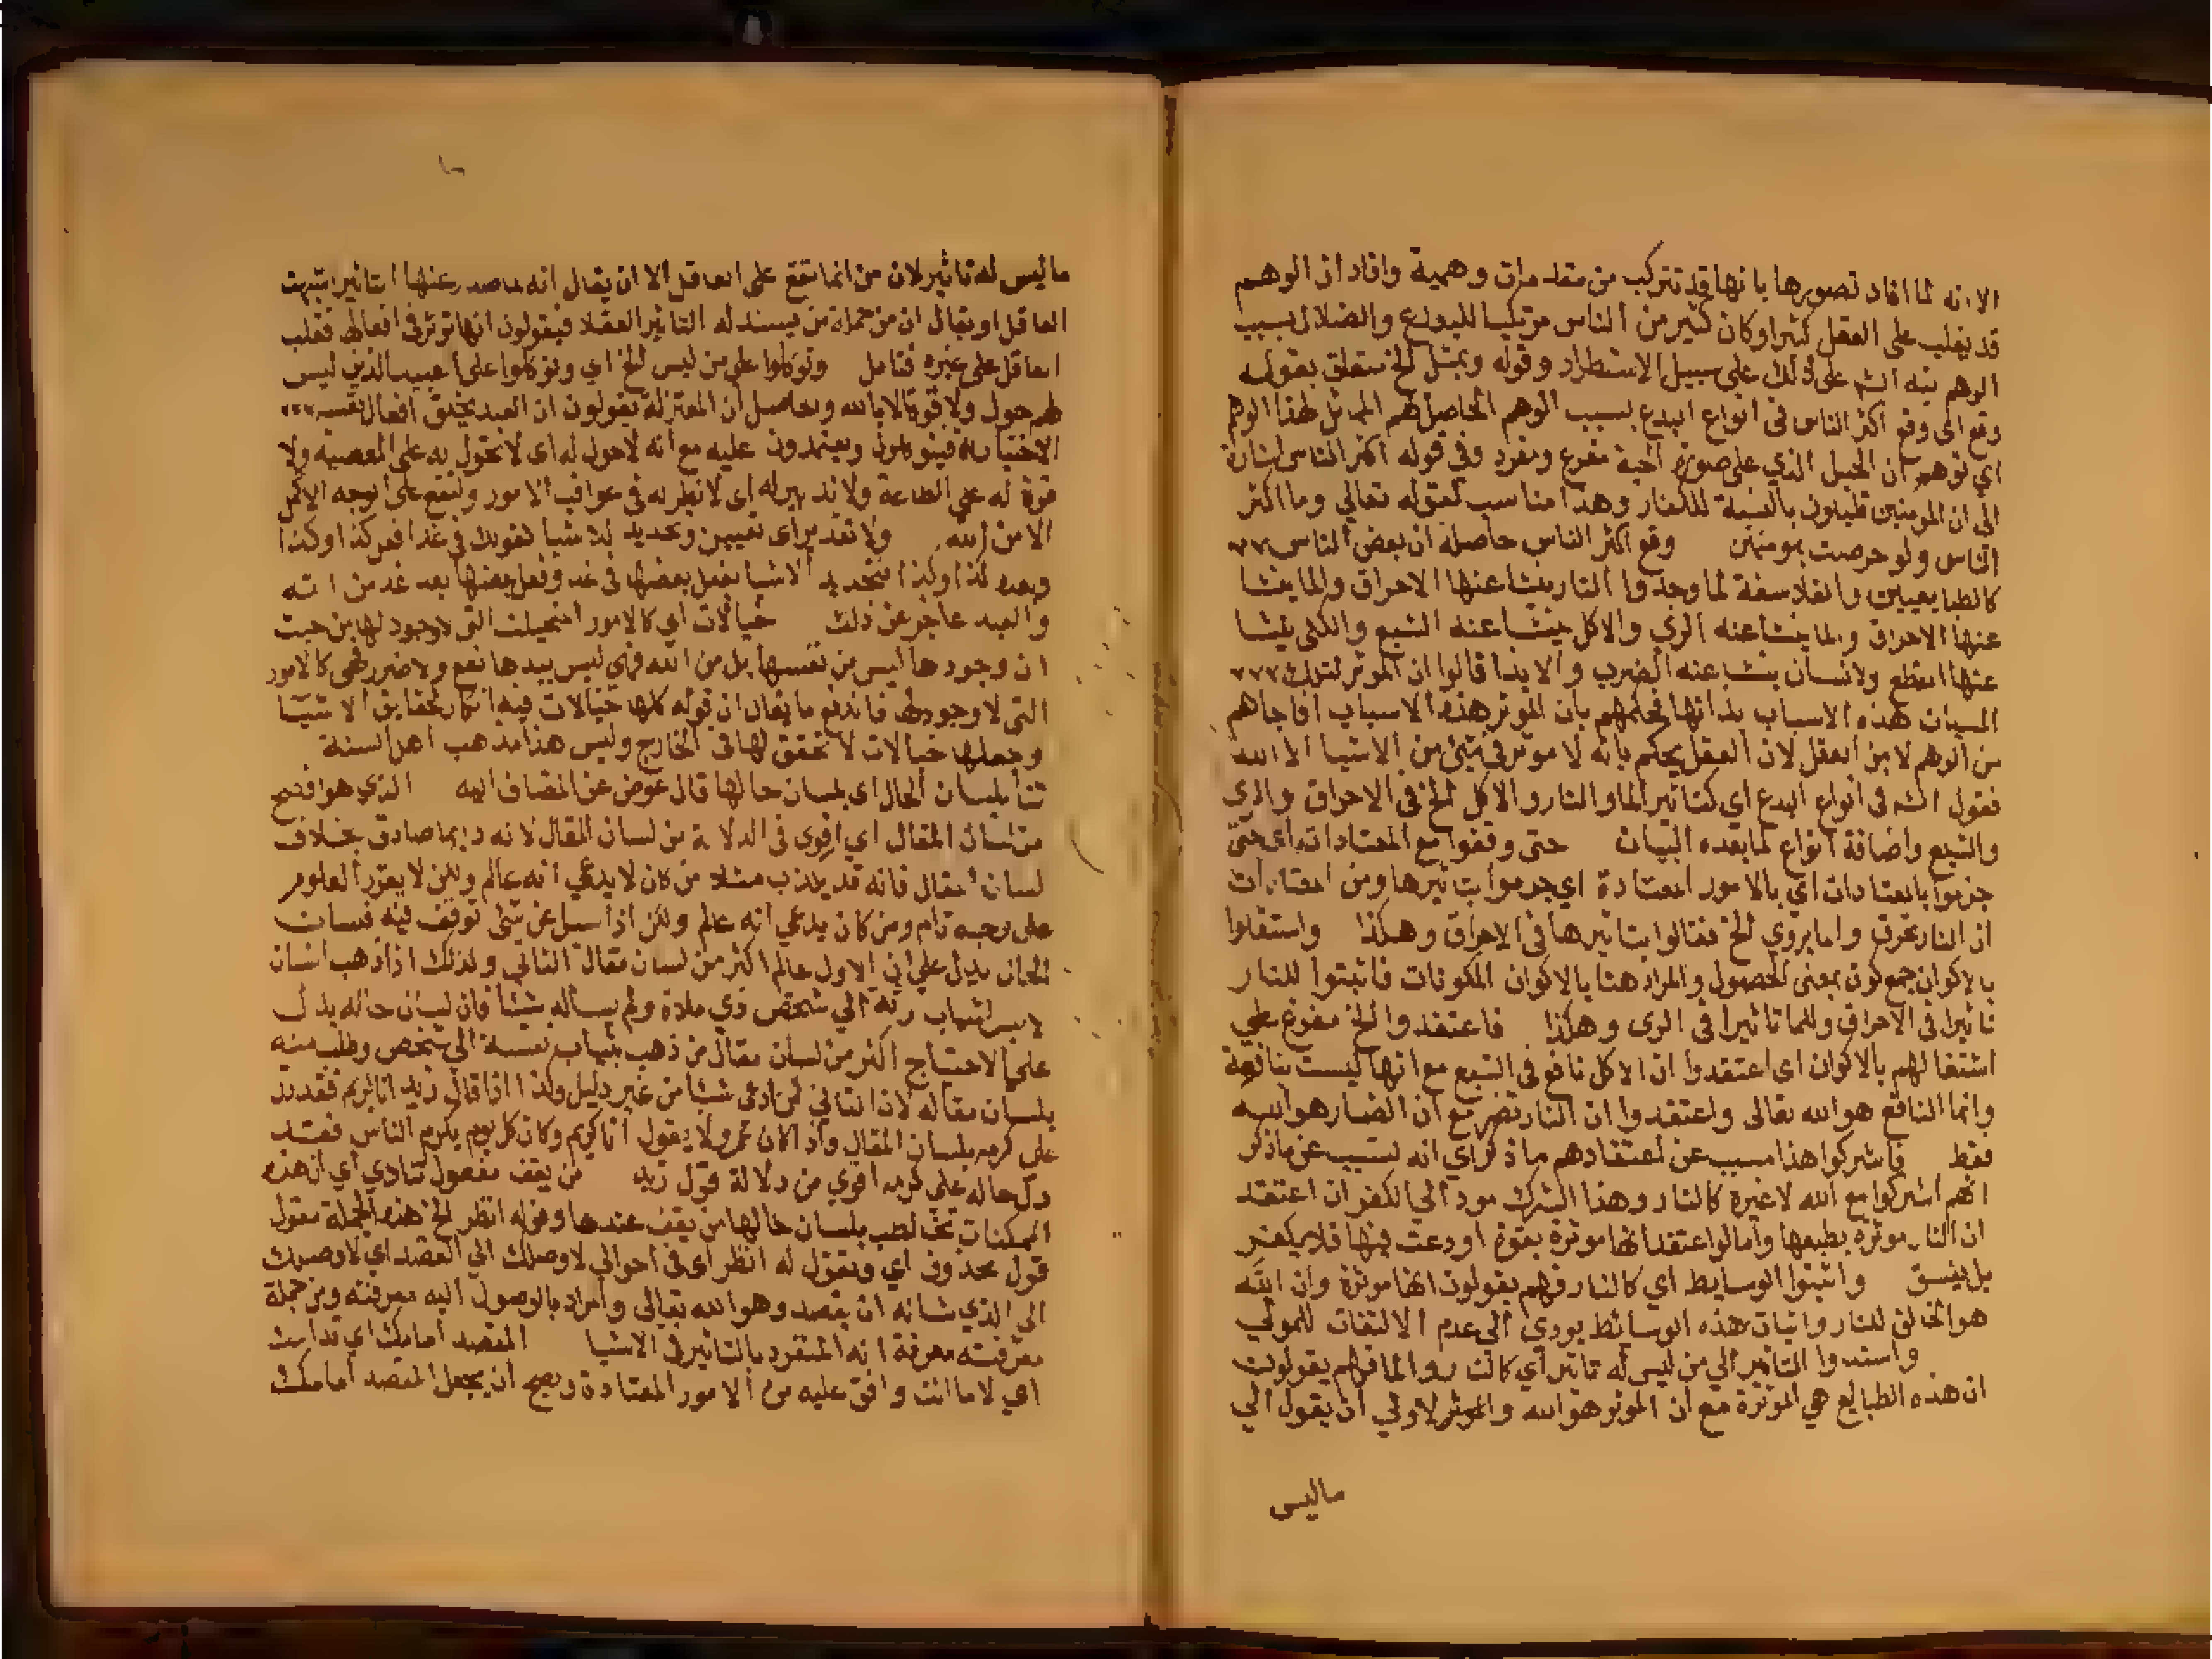 الا انه لما افاد تصورها بانها قد تتركب من مقدمات وهمية وافاد ان الوهم
قد يغلب على العقل كثيرا وكان كثير من الناس مرتكبا للبدع والضلال بسبب
الوهم نبه الش على ذلك على سبيل الاستطراد وقوله وبمثل الخ متعلق بقوله
وقع اى وقع اكثر الناس فى انواع البدع بسبب الوهم الحاصل لهم المماثل لهذا الوهم
اي توهم ان الحبل الذي على صورة الحية مفزع ومفرد وفى قوله اكثر الناس اشارة
الى ان المومنين قليلون بالنسبة للكفار وهذا مناسب لقوله تعالي وما اكثر
الناس ولو حرصت بمومنين وقع اكثر الناس حاصله ان بعض الناس
كالطبايعيين والفلاسفة لما وجدوا النار ينشا عنها الاحراق والما ينشا
عنها الاحراق والما ينشا عنه الري والاكل ينشا عنه الشبع والسكين ينشا
عنها القطع والانسان ينشا عنه الضرب والايذا قالوا ان الموثر لتلك
المسببات هذه الاسباب بذاتها فحكمهم بان الموثر هذه الاسباب انما جاهم
من الوهم لا من العقل لان العقل يحكم بانه لا موثر فى شئ من الاشيا الا الله
فقول الش فى انواع البدع اي كتاثير الما والنار والاكل الخ فى الاحراق والري
والشبع واضافة انواع لما بعده للبيان حتى وقفوا مع المعتادات اى حتى
جزموا بالمعتادات اي بالامور المعتادة اي جزموا بتاثيرها ومن المعتادات
ان النار تحرق والما يروي الخ فقالوا بتاثيرها فى الاحراق وهكذا واشتغلوا
بالاكوان جمع كون بمعنى الحصول والمراد هنا بالاكوان المكونات فاثبتوا للنار
تاثيرا فى الاحراق وللما تاثيرا فى الرى وهكذا فاعتقدوا الخ مفرع على
اشتغالهم بالاكوان اى اعتقدوا ان الاكل نافع فى الشبع مع انها ليست بنافعة
وانما النافع هو الله تعالى واعتقدوا ان النار تضر مع ان الضار هو الله
فقط فاشركوا هذا مسبب عن اعتقادهم ما ذكر اي انه تسبب عن ما ذكر
انهم اشركوا مع الله لا غيره كالنار وهذا الشرك مود الي الكفر ان اعتقد
ان النار موثره بطبعها واما لو اعتقد انها موثرة بقوة اودعت فيها فلا يكفر
بل يفسق واثبتوا الوسايط اي كالنار فهم يقولون انها موثرة وان الله
هو الخالق للنار واثبات هذه الوسائط يودي الى عدم الالتفات للمولي
واسندوا التاثير الي من ليس له تاثير اي كالنار والما فهم يقولون
ان هذه الطبايع هي الموثرة مع ان الموثر هو الله والاولي ان يقول الي
ماليس
ما ليس له تاثير لان من انما تقع على العاقل الا ان يقال انه لما صدر عنها التاثير اشبهت
العاقل او يقال ان من جملة من يسند له التاثير العقلا فيقولون انها توثر فى افعالها فغلب
العاقل على غيره فتامل وتوكلوا على من ليس الخ اي وتوكلوا على العبيد الذين ليس
لهم حول ولا قوة الا بالله وحاصله ان المعتزلة يقولون ان العبد يخلق افعال نفسه
الاختيارية فيتوكلون ويعتمدون عليه مع انه لا حول له اى لا تحول به على المعصيه ولا
قوة له على الطاعة ولا تدبير له اى لا نظر له فى عواقب الامور ولتقع على الوجه الاكمل
الا من الله ولا تقدير اى تعيين وتحديد للاشيا كقولك فى غدا افعل كذا وكذا
وبعده كذا وكذا فتحديد الاشيا بفعل بعضها فى غد وفعل بعضها بعد غد من الله
والعبد عاجز عن ذلك خيالات اي كالامور المتخيلات التى لا وجود لها من حيث
ان وجودها ليس من نفسها بل من الله فهى ليس بيدها نفع ولا ضرر فهى كالامور
التى لا وجود لها فاندفع ما يقال ان قوله كلها خيالات فيه انكار لحقايق الاشيا
وجعلها خيالات لا تحقق لها فى الخارج وليس هذا مذهب اهل السنة
تنا بلسان الحال اى بلسان حالها فال عوض عن المضاف اليه الذي هو افصح
من لسان المقال اي اقوى فى الدلالة من لسان المقال لانه دايما صادق بخلاف
لسان المقال فانه قد يكذب مثلا من كان لا يدعي انه عالم ولكن لا يقرر العلوم
على وجه تام ومن كان يدعي انه عالم ولكن اذا سيل عن شئ توقف فيه فلسان
الحال يدل على ان الاول عالم اكثر من لسان مقال الثاني ولذلك اذا ذهب انسان
لابس لثياب رثة الي شخص ذي ملاة ولم يساله شيئا فان لسان حاله يدل
على الاحتياج اكثر من لسان مقال من ذهب بثياب نفيسة الي شخص وطلب منه
بلسان مقاله لان الثاني كمن ادعى شيئا من غير دليل وكذا اذا قال زيد انا كريم فقد دل
على كرمه بلسان المقال واذا كان عمرو لا يقول انا كريم وكان كل يوم يكرم الناس فقد
دل حاله على كرمه اقوي من دلالة قول زيد من يقف مفعول تنادي اي ان هذه
الممكنات تخاطب بلسان حالها من يقف عندها وقوله انظر الخ هذه الجملة مقول
قول محذوف اي وتقول له انظر اى فى احوالي لاوصلك الي المقصد اي لاوصلك
الى الذي شانه ان يقصد وهو الله تعالى والمراد بالوصول اليه معرفته ومن جملة
معرفته معرفة انه المنفرد بالتاثير فى الاشيا المقصد امامك اي قدامك
اي لا ما انت واقف عليه من الامور المعتادة ويصح ان يجعل المقصد امامك